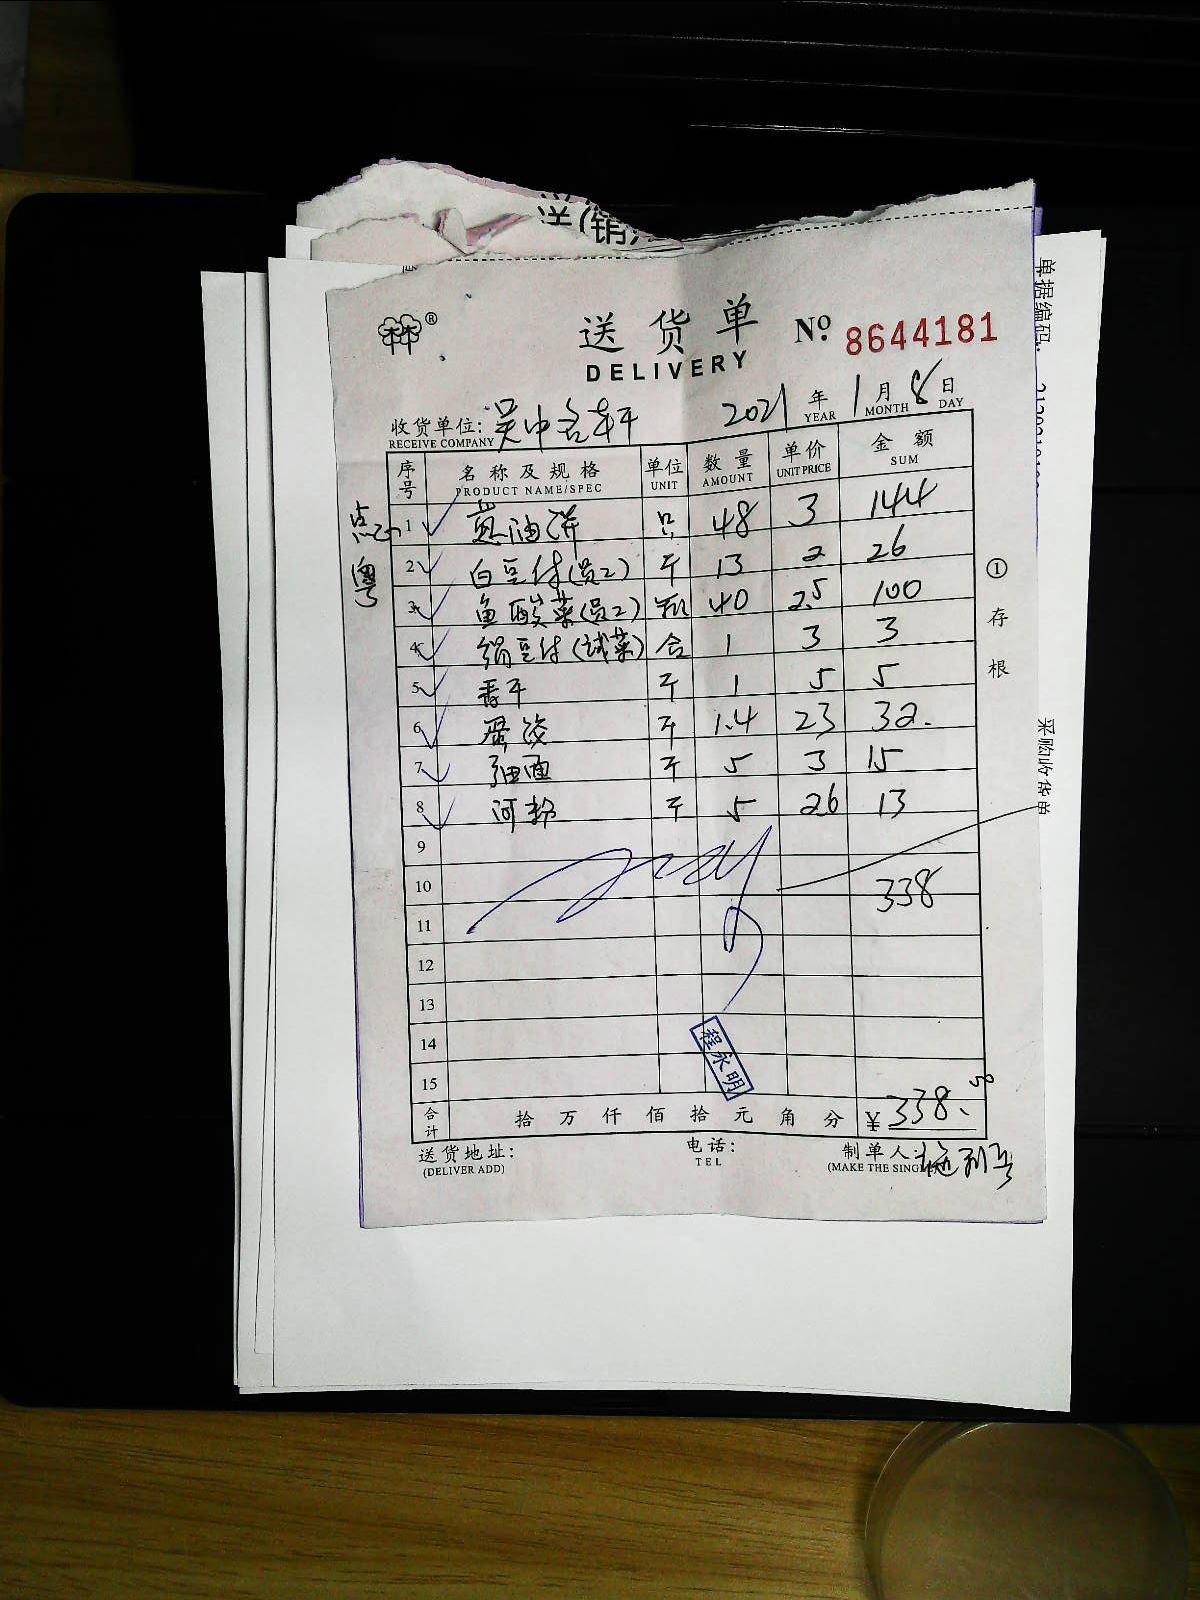 送(销
®
送货单
DELIVERY
Nº 8644181
收货单位: 吴中名轩
RECEIVE COMPANY
2021 年 1 月 8 日
YEAR MONTH DAY
序号 名称及规格 单位 数量 单价 金额
PRODUCT NAME/SPEC UNIT AMOUNT UNIT PRICE SUM
点心
粤
1 葱油饼 只 48 3 144
2 白豆付(员工) 斤 13 2 26
3 鱼酸菜(员工) 40 2.5 100
4 绢豆付(试菜) 合 1 3 3
5 香干 斤 1 5 5
6 蛋饺 斤 1.4 23 32.
7 油面 斤 5 3 15
8 河粉 斤 5 26 13
9
10 338
11
12
13
14
15
程永明
合计 拾 万 仟 佰 拾 元 角 分 ¥ 338.50
送货地址: 电话: 制单人:
(DELIVER ADD) TEL (MAKE THE SINGLE
①存根
单据编码:
采购收货单